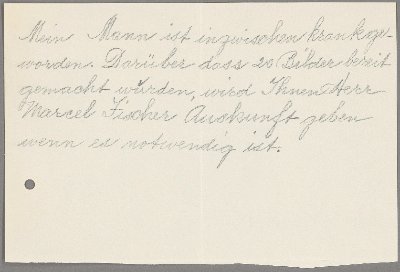 Mein Mann ist inzwischen krank ge-
worden. Darüber dass 20 Bilder bereit
gemacht würden, wird Ihnen Herr
Marcel Fischer Auskunft geben
wenn es notwendig ist.